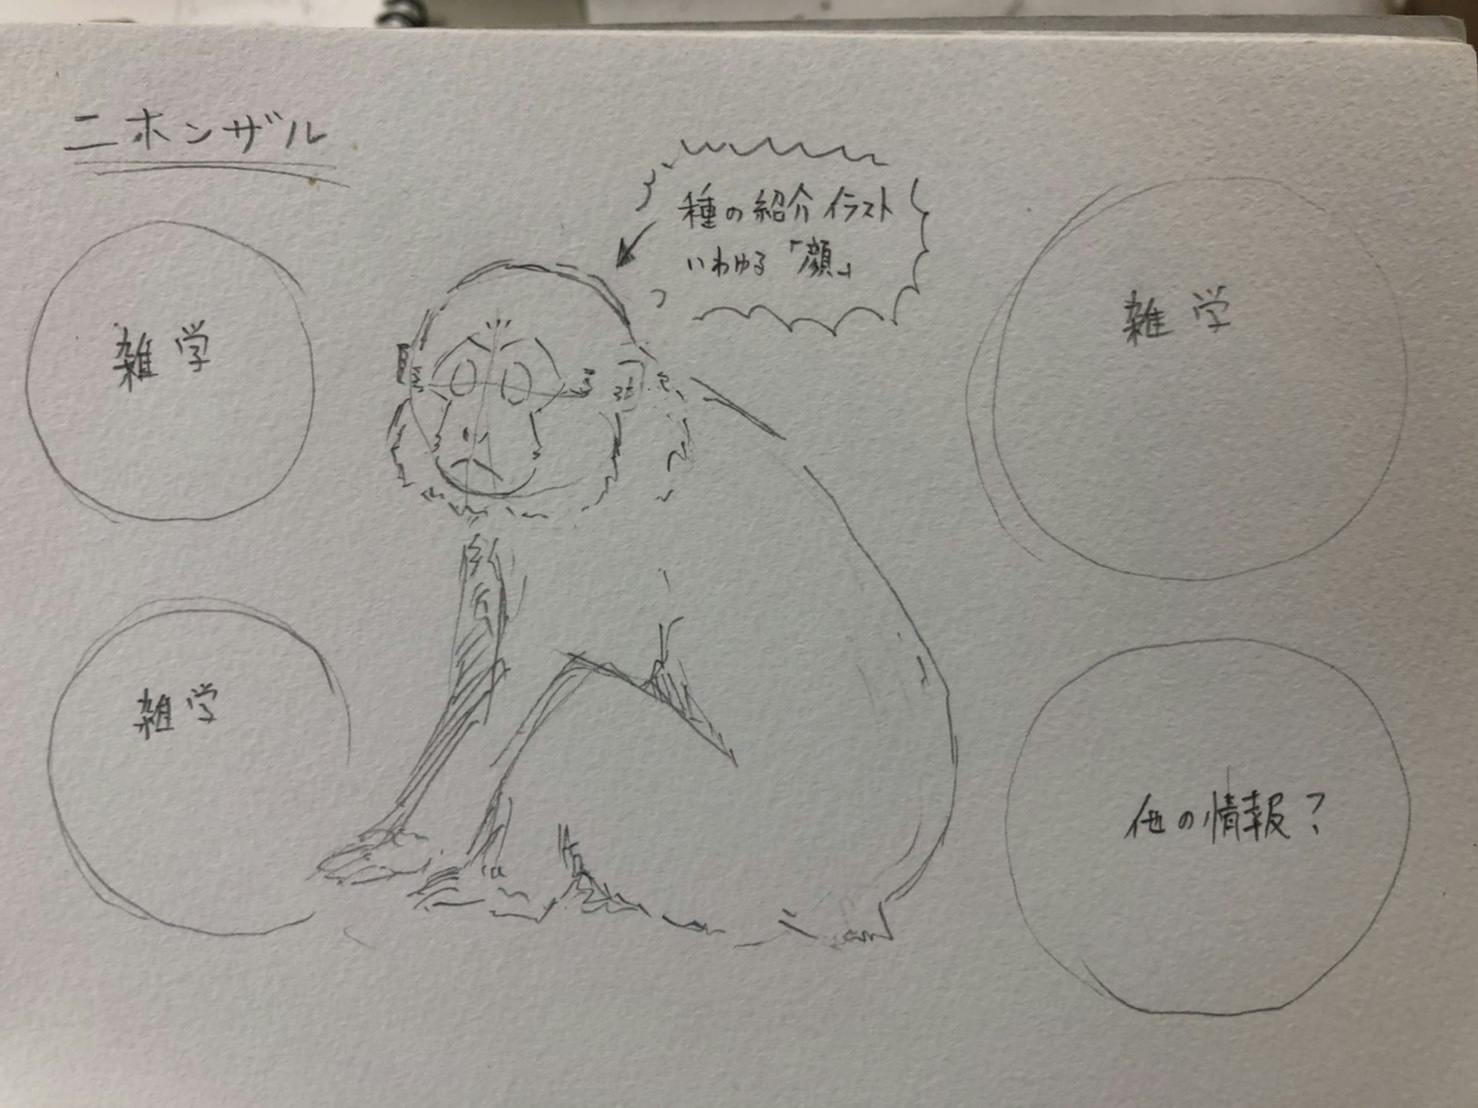 ニホンザル
種の紹介イラスト
いわゆる「顔」
雑学
雑学
雑学
他の情報?